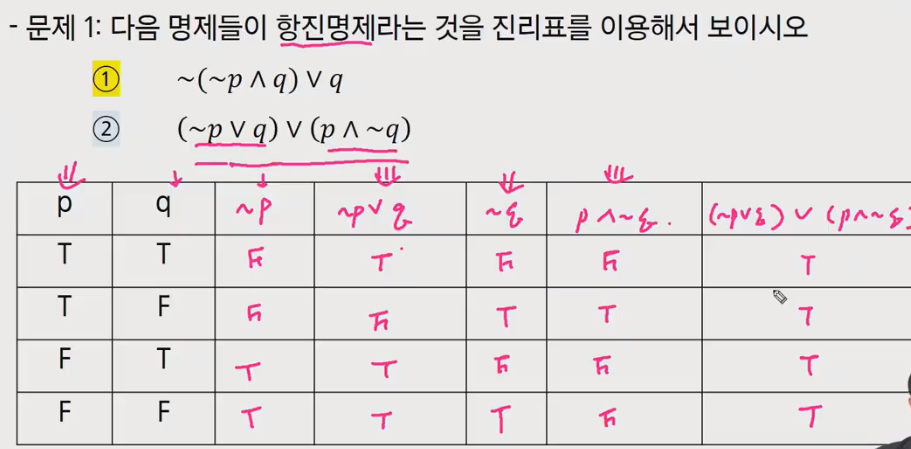 - 문제 1: 다음 명제들이 항진명제라는 것을 진리표를 이용해서 보이시오
① ~(~p ∧ q) ∨ q
② (~p ∨ q) ∨ (p ∧ ~q)
p q ~p ~p∨q ~q p∧~q. (~p∨q) ∨ (p∧~q)
T T F T F F T
T F F F T T T
F T T T F F T
F F T T T F T